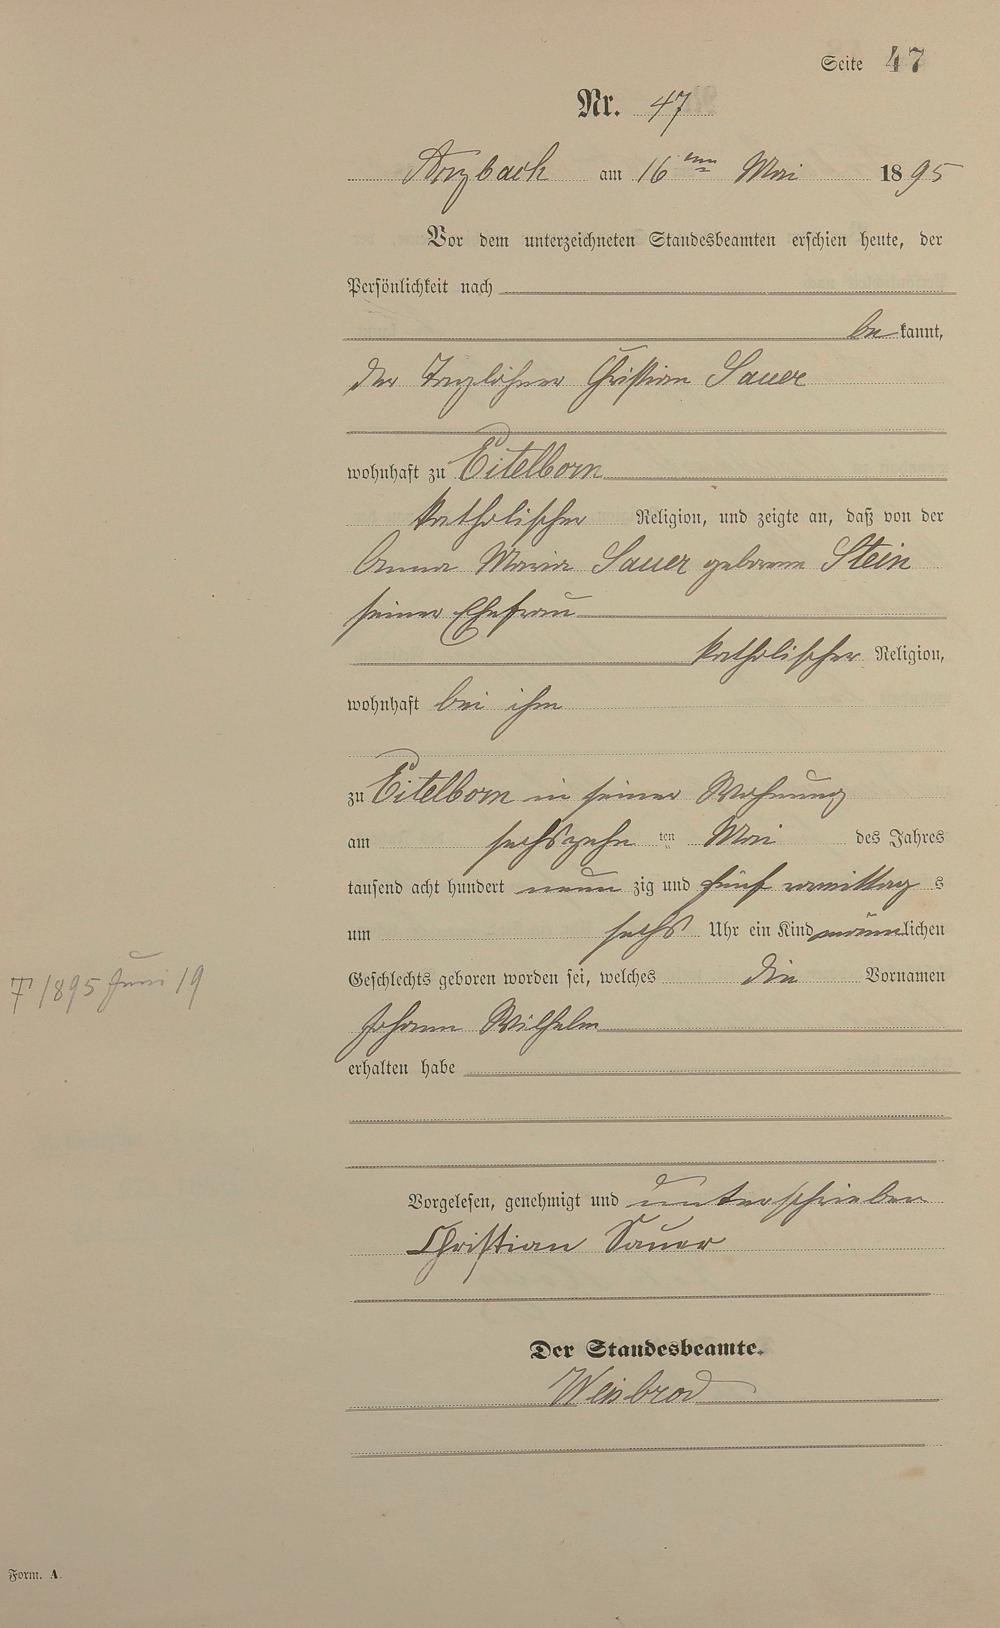 Seite 47
Nr. 47
Arzbach am 16ten Mai 1895
Vor dem unterzeichneten Standesbeamten erschien heute, der
Persönlichkeit nach
bekannt,
der Taglöhner Christian Sauer
wohnhaft zu Eitelborn
katholischer Religion, und zeigte an, daß von der
Anna Maria Sauer geborene Stein
seiner Ehefrau
katholischer Religion,
wohnhaft bei ihm
zu Eitelborn in seiner Wohnung
am sechszehnten Mai des Jahres
tausend acht hundert neunzig und fünf vormittags
um sechs Uhr ein Kind männlichen
Geschlechts geboren worden sei, welches die Vornamen
† 1895 Juni 19
Johann Wilhelm
erhalten habe
Vorgelesen, genehmigt und unterschrieben
Christian Sauer
Der Standesbeamte.
Weisbrod
Form. A.